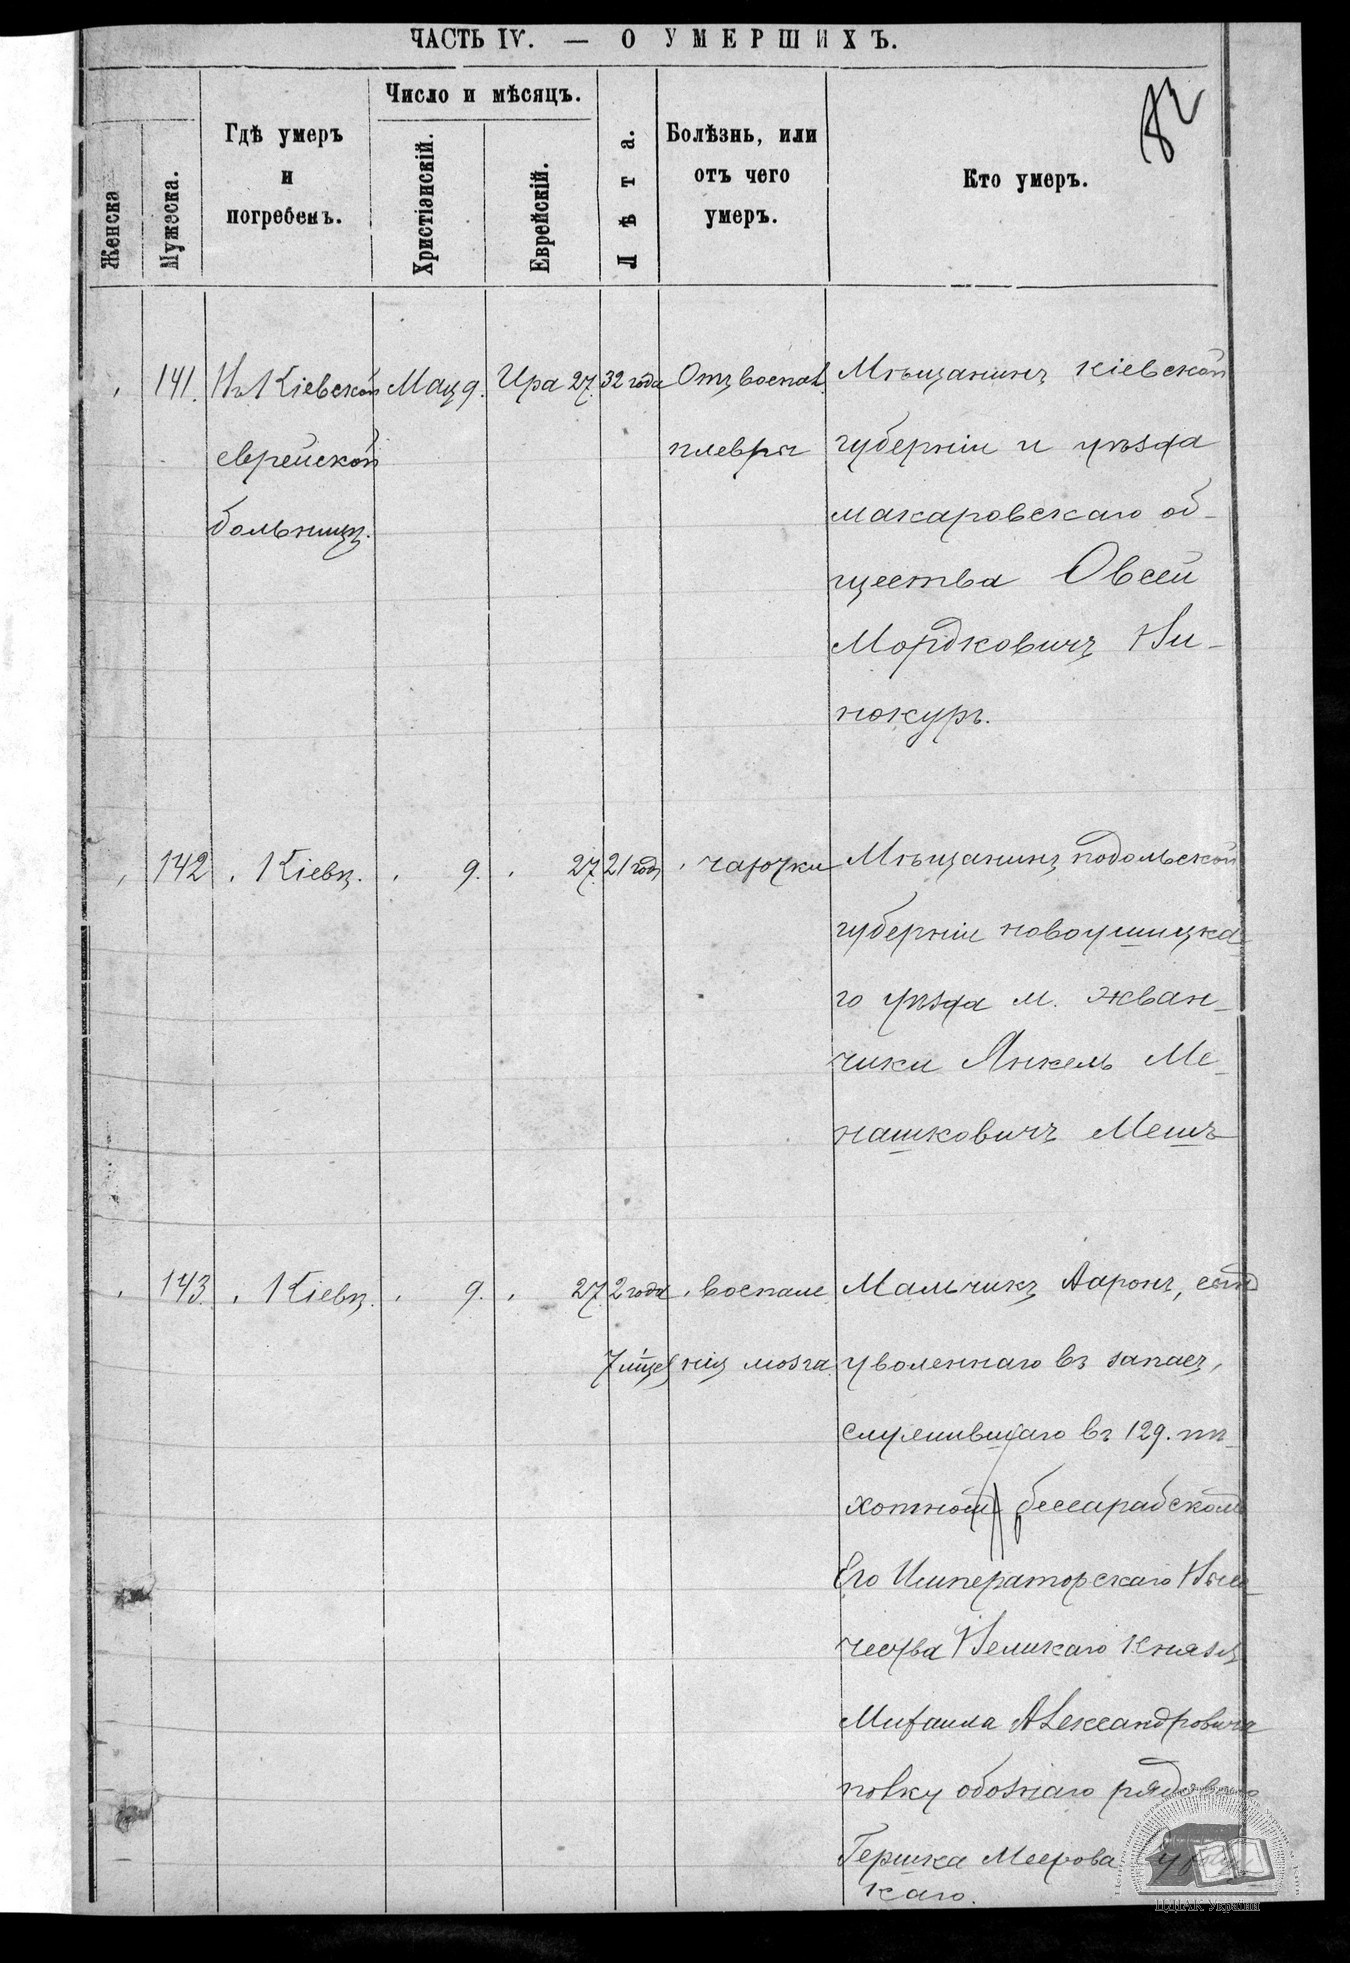 ЧАСТЬ IV. — О УМЕРШИХЪ.
82
Женска
Мужеска.
Гдѣ умеръ
и
погребенъ.
Число и мѣсяцъ.
Христіэнскій.
Еврейскій.
Лѣта.
Болѣзнь, или
отъ чего
умеръ.
Кто умеръ.
141. Въ Кіевской Мая 9. Ира 27. 32 года Отъ воспал. Мѣщанинъ кіевской
еврейской плевры губерніи и уѣзда
больницѣ. макаровскаго об-
щества Овсей
Мордковичъ Ви-
нокуръ.
142 „ Кіевѣ. „ 9. „ 27. 21 годъ „ чахотки Мѣщанинъ подольской
губерніи новоушицка-
го уѣзда м. жван-
чики Янкель Ме-
нашковичъ Мешъ
143. „ Кіевѣ. „ 9. „ 27. 2 года „ воспале- Мальчикъ Ааронъ, сынъ
7 мѣцев нія мозга. уволеннаго въ запасъ,
служившаго въ 129. пѣ-
хотномъ бессарабскомъ
Его Императорскаго Высо-
чества Великаго Князя
Михаила Александровича
полку обознаго рядового
Гершка Меерова
каго.
ЦДІАК України